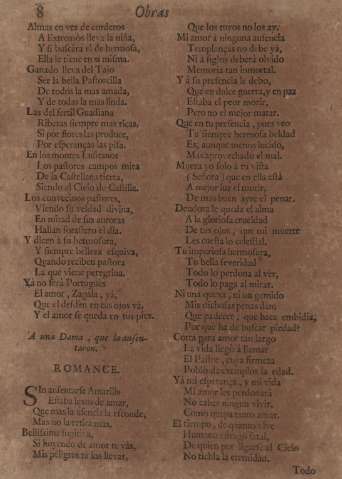 8 Obras
Almas en vez de corderos
A Estremòs lleva la niña,
Y si buscàra el de hermosa,
Ella le tiene en si misma.
Ganado lleva del Tajo
Ser la bella Pastorcilla
De todas la mas amada,
Y de todas la mas linda.
Las del fertil Guadiana
Riberas siempre mas ricas,
Si por flores las produce,
Por esperanças las pisa.
En los montes Lusitanos
Los pastores campos mira
De la Castellana tierra,
Siendo el Cielo de Castilla.
Los convecinos pastores,
Viendo su beldad divina,
En mitad de sus auroras
Hallan forastero el dia.
Y dizen à su hermosura,
Y siempre bellera esquiva,
Quando reciben pastora
La que viene peregrina.
Ya no serà Portuguès
El amor, Zagala, yà,
Que el desden en tus ojos và,
Y el amor se queda en tus pies.
A una Dama, que le ausentaron.
ROMANCE.
SIn ausentarse Amarilis
Estaba lexos de amar,
Que mas la ausencia la esconde,
Mas no la retira mas.
Bellissima fugitiva,
Si huyendo de amor te vàs,
Mis peligros te los llevas,
Que los tuyos no los ay.
Mi amor à ninguna ausencia
Templanças no debe yà,
Ni à siglos deberà olvido
Memoria tan inmortal.
Y à su presencia le debo,
Que en dulce guerra, y en paz
Estaba el peor morir,
Pero no el mejor matar.
En tu presencia, pues veo
Tu siempre hermosa beldad
Es, aunque menos lucido,
Mas aprovechado el mal.
Muera yo solo à tu vista
(Señora) que en ella està
A mejor luz el morir,
De mas buen ayre el penar.
Deudora le queda el alma
A la gloriosa crueldad
De tus ojos, que mi muerte
Les cuesta lo celestial.
Tu imperiosa hermosura,
Tu bella severidad
Todo lo perdona al ver,
Todo lo paga al mirar.
Ni una quexa, ni un gemido
Mis dichosas penas dan;
Que padecer, que haze embidia,
Por què ha de buscar piedad?
Corta para amor tan largo
La vida llegò à llamar
El Pastor, cuya firmeza
Pudo ser exemplo à la edad.
Yà mi esperança, y mi vida
Mi amor les perdonarà
No caber ninguna vivir,
Como quepa tanto amar.
El tiempo, de quanto vive
Humano estrago fatal,
De quien por llegarse al Cielo
No tiembla la eternidad.
Todo